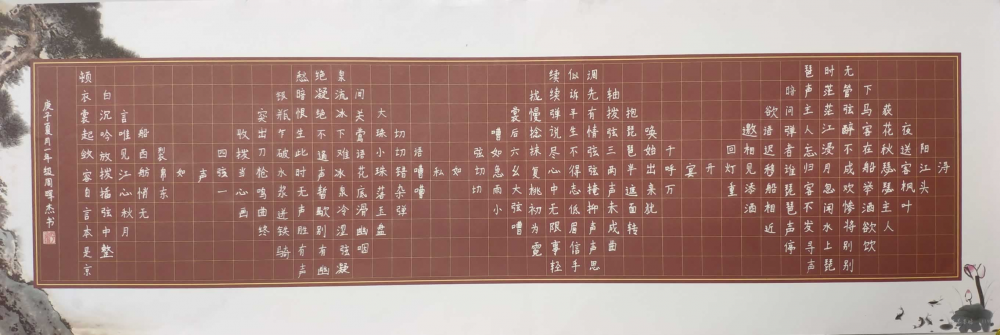 浔
阳江头
夜送客枫叶
荻花秋瑟瑟主人
下马客在船举酒欲饮
无管弦醉不成欢惨将别别
时茫茫江浸月忽闻水上琵
琶声主人忘归客不发寻声
暗问弹者谁琵琶声停
欲语迟移船相近
邀相见添酒
回灯重
开
宴
千呼万
唤始出来犹
抱琵琶半遮面转
轴拨弦三两声未成曲
调先有情弦弦掩抑声声思
似诉平生不得志低眉信手
续续弹说尽心中无限事轻
拢慢捻抹复挑初为霓
裳后六幺大弦嘈
嘈如急雨小
弦切切
如
私
语嘈嘈
切切错杂弹
大珠小珠落玉盘
间关莺语花底滑幽咽
泉流冰下难冰泉冷涩弦凝
绝凝绝不通声暂歇别有幽
愁暗恨生此时无声胜有声
银瓶乍破水浆迸铁骑
突出刀枪鸣曲终
收拨当心画
四弦一
声
如
裂帛东
船西舫悄无
言唯见江心秋月
白沉吟放拨插弦中整
顿衣裳起敛容自言本是京
庚子夏月一年级周晖杰书